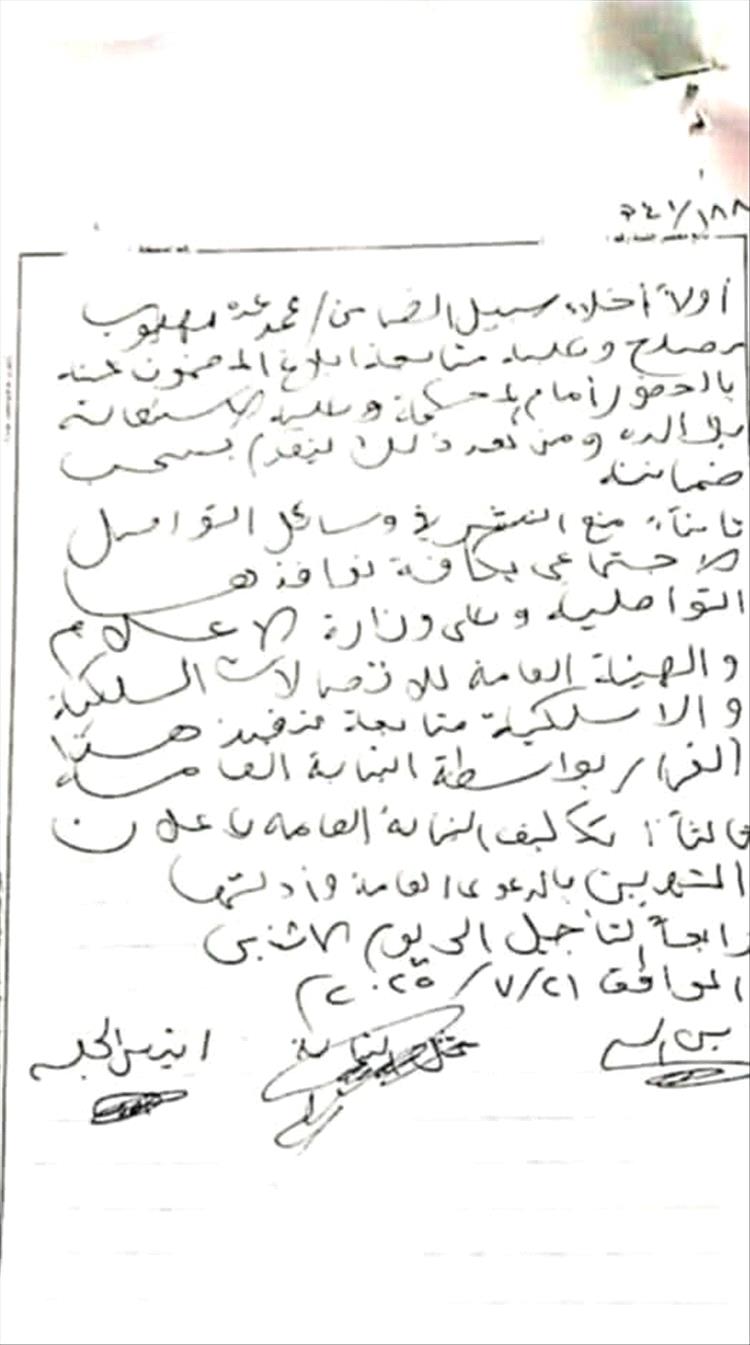 أولاً: إخلاء سبيل الضامن / محمد عبده مهيوب
مصلح وعليه متابعة إبلاغ المضمون عنه
بالحضور أمام المحكمة وعليه الاستعانة
ومن بعد ذلك ليتقدم بسحب
ضمانته
ثانياً: منع النشر في وسائل التواصل
الاجتماعي بكافة نوافذها
التواصلية وعلى وزارة الاعلام
والهيئة العامة للاتصالات السلكية
والاسلكية متابعة تنفيذ هذا
القرار بواسطة النيابة العامة
ثالثاً: تكليف النيابة العامة باعلان
المتهمين بالدعوى العامة وأدلتها
رابعاً: التأجيل الى يوم الاثنين
الموافق ٢١/٧/٢٠٢٥م
ممثل النيابة
امين الجلسة